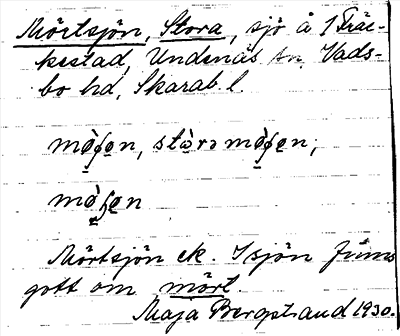 Mörtsjön, Stora, sjö å 1 Fräc-
kestad, Undenäs sn, Vads-
bo hd, Skarab. l.
Mörtsjön ek. I sjön finns
gott om mört.
Maja Bergstrand 1930.